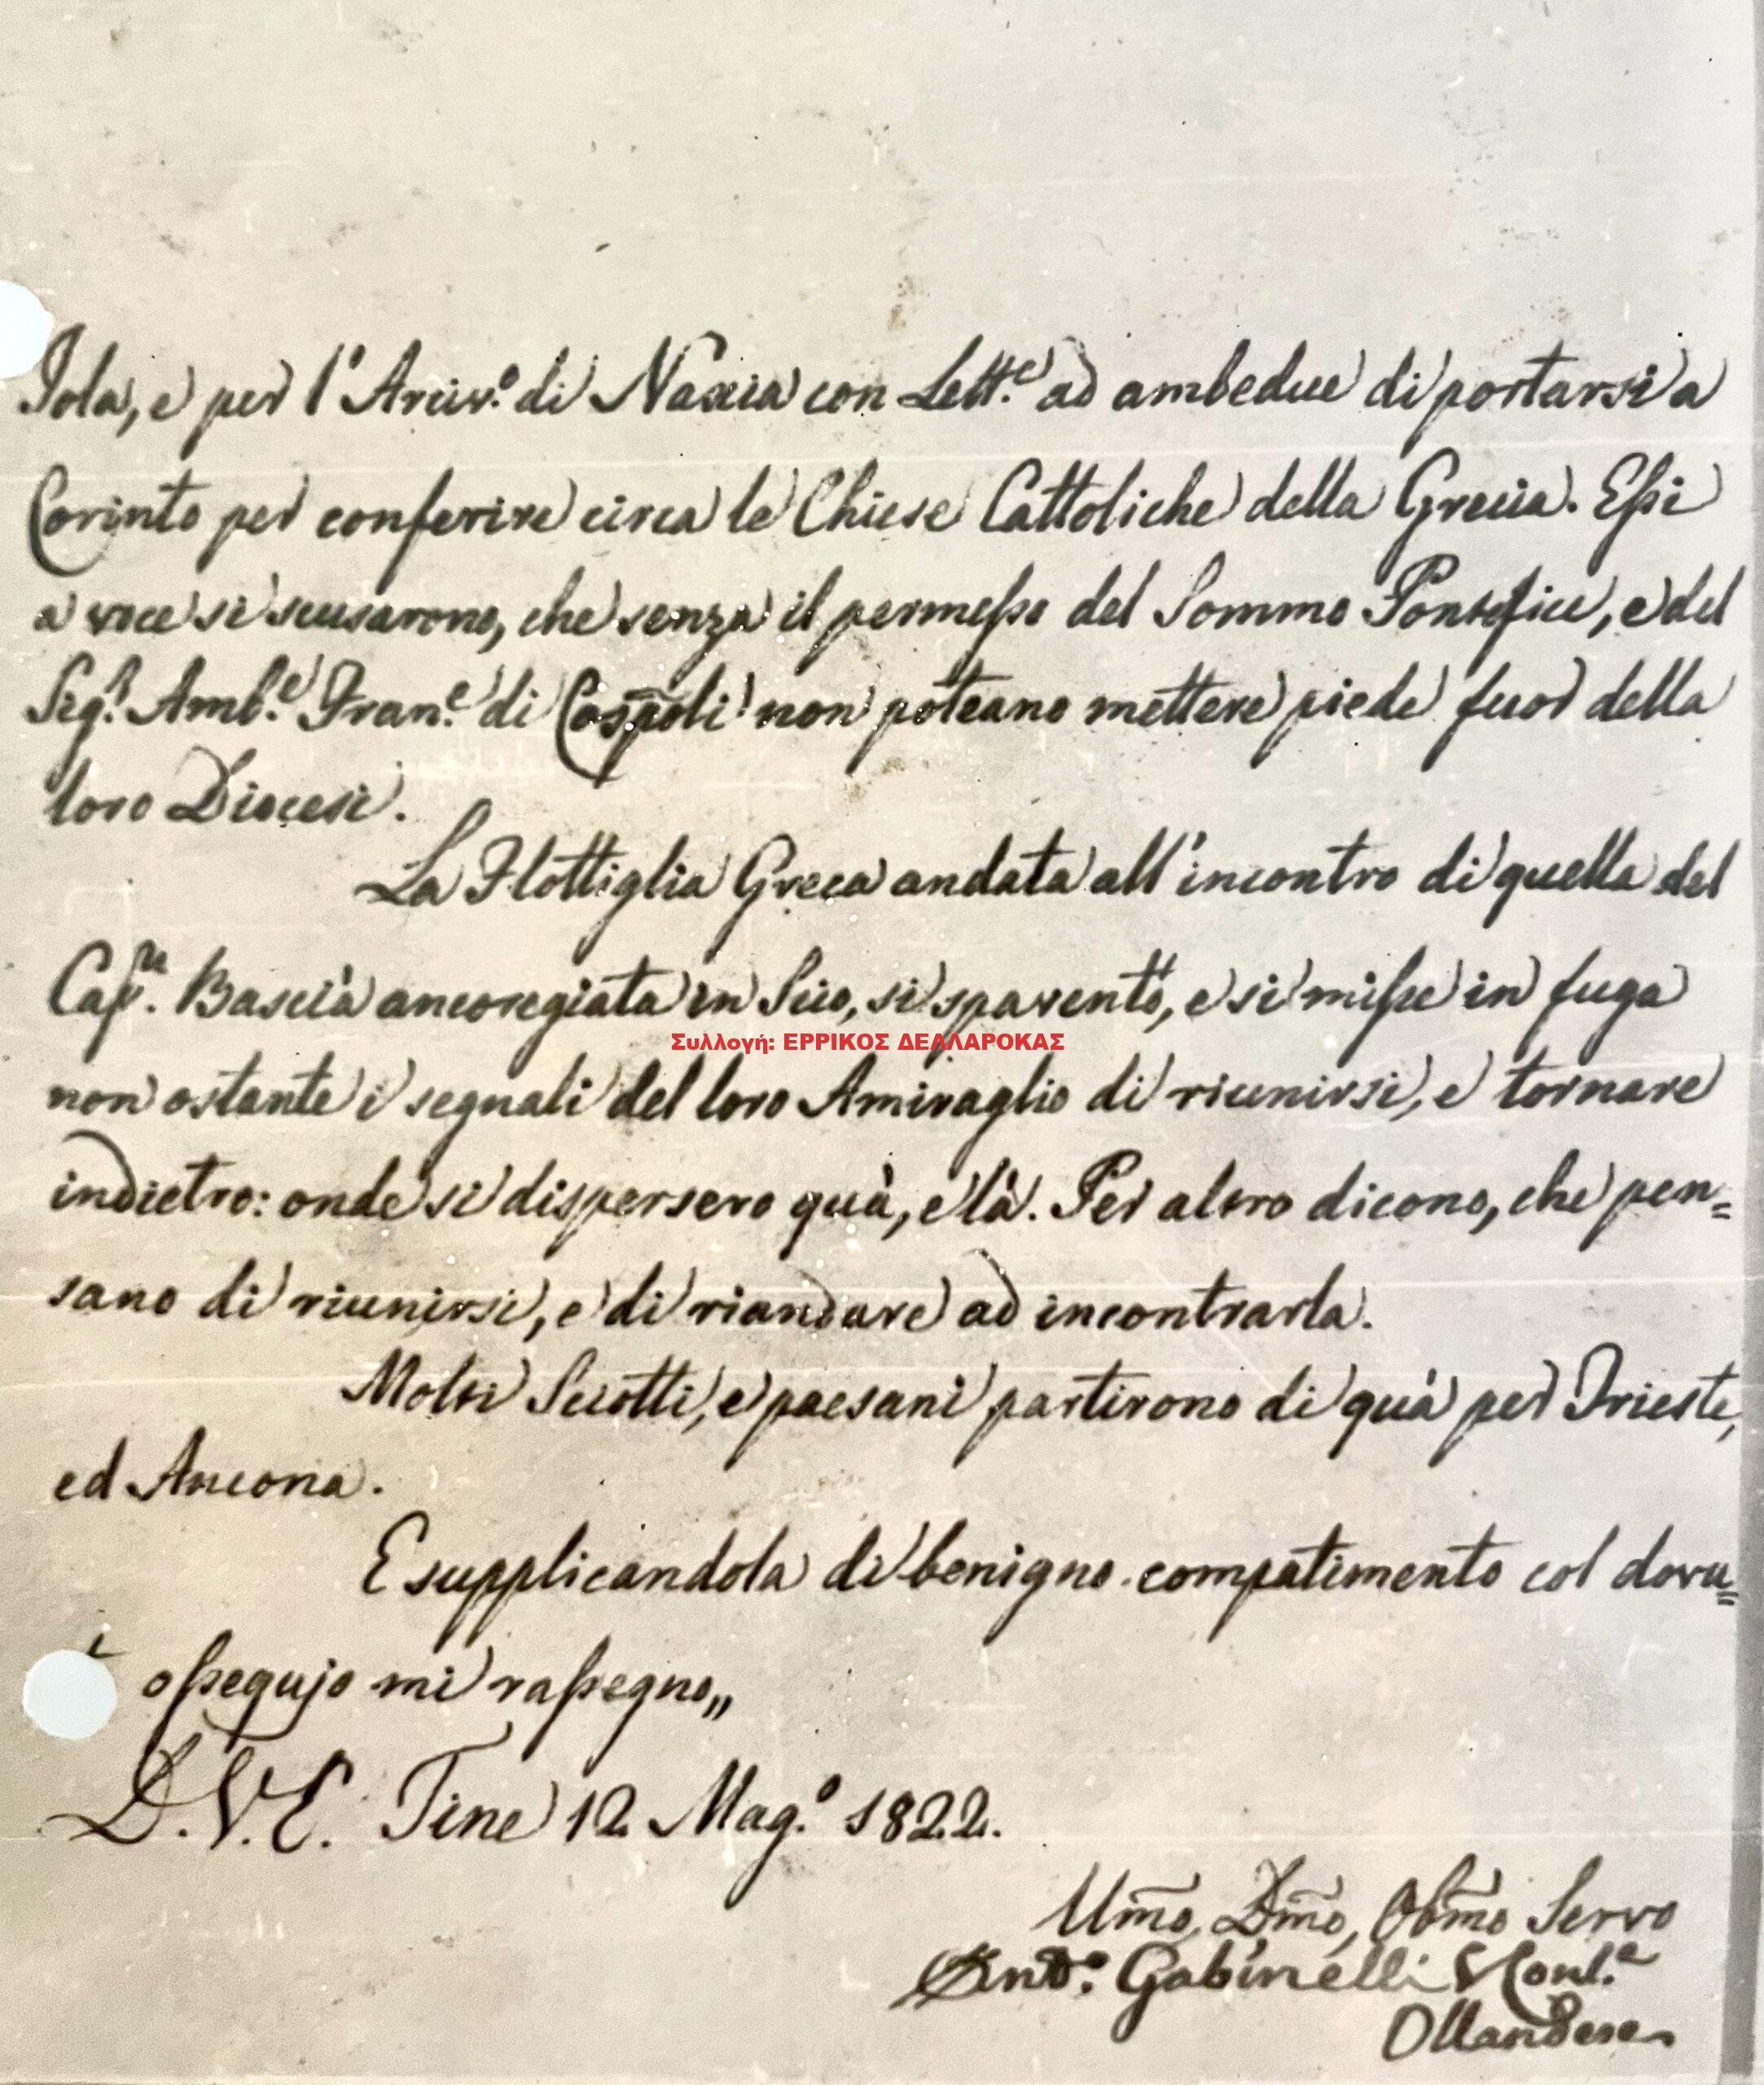 Isola, e per l'Arciv.º di Naxia con Lett.ᵉ ad ambedue di portarsi a
Corinto per conferire circa le Chiese Cattoliche della Grecia. Essi
a voce si scusarono, che senza il permesso del Sommo Pontefice, e del
Sig.ʳ Amb.ᵉ Fran.ᵉ di Cospoli non poteano mettere piede fuor della
loro Diocesi.
La Flottiglia Greca andata all'incontro di quella del
Cap.ⁿ Bascià ancoregiata in Scio, si spaventò, e si misse in fuga
Συλλογή: ΕΡΡΙΚΟΣ ΔΕΛΛΑΡΟΚΑΣ
non ostante i segnali del loro Amiraglio di riunirsi, e tornare
indietro: onde si dispersero quà, e là. Per altro dicono, che pen=
sano di riunirsi, e di riandare ad incontrarla.
Molti Sciotti, e paesani partirono di quà per Trieste,
ed Ancona.
E supplicandola di benigno compatimento col dovu=
ossequjo mi rassegno,,
D. V. E. Tine 12 Mag.º 1822.
Umõ, Dmõ, Obmõ Servo
And.º Gabinelli V Conl.ᵉ
Ollandese